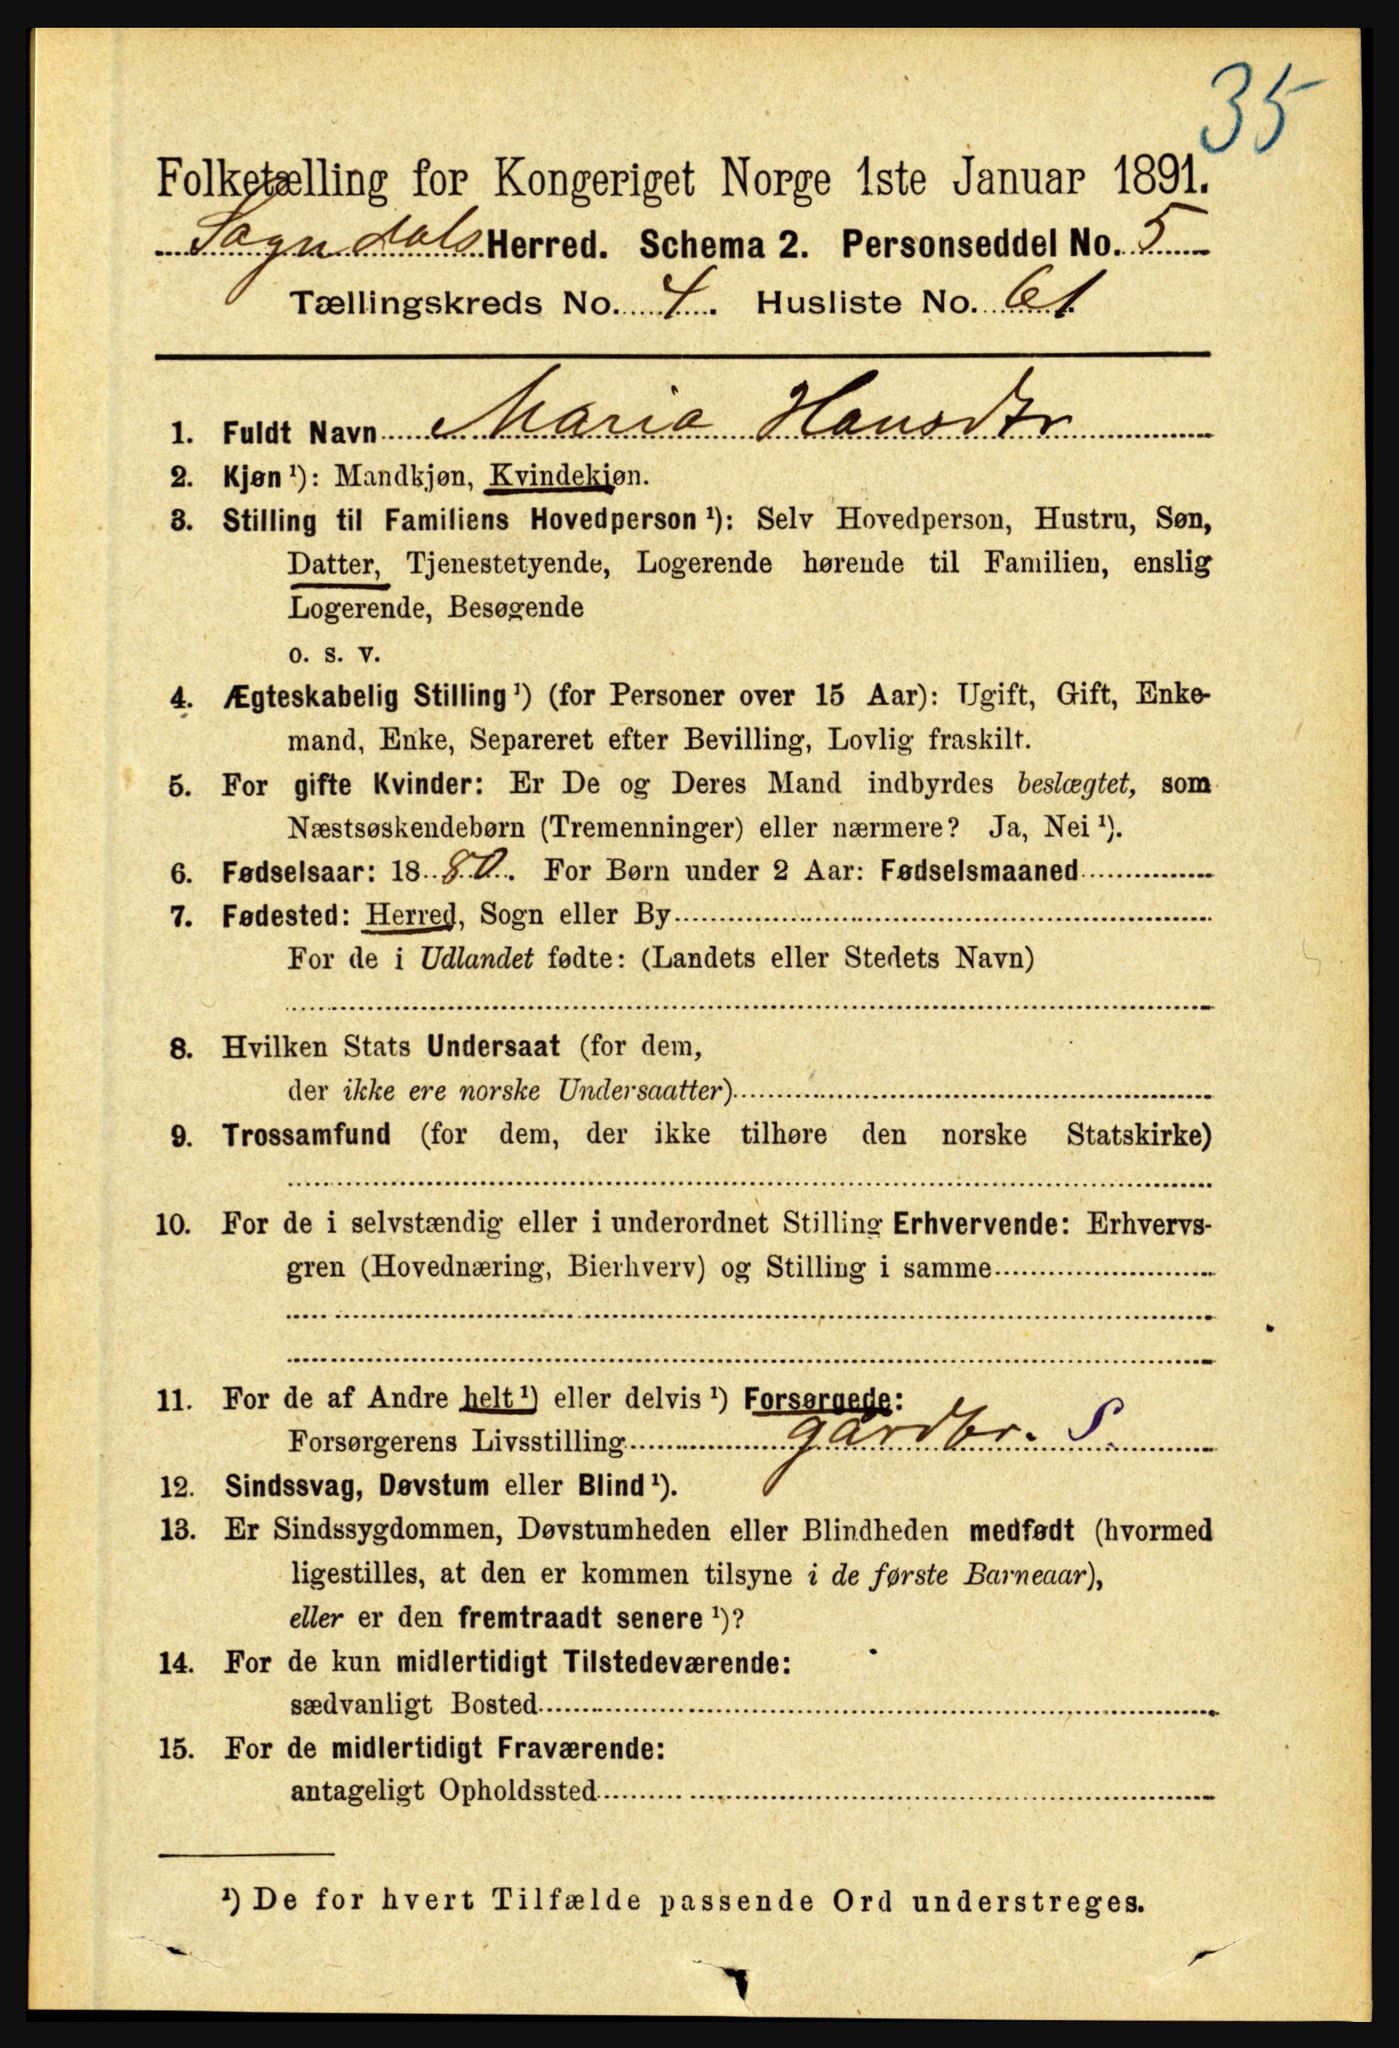 35
Folketælling for Kongeriget Norge 1ste Januar 1891.
Sogndals Herred. Schema 2. Personseddel No. 5
Tællingskreds No. 4. Husliste No. 61
1. Fuldt Navn Maria Hansdtr
2. Kjøn ¹): Mandkjøn, Kvindekjøn.
3. Stilling til Familiens Hovedperson ¹): Selv Hovedperson, Hustru, Søn,
Datter, Tjenestetyende, Logerende hørende til Familien, enslig
Logerende, Besøgende
o. s. v.
4. Ægteskabelig Stilling ¹) (for Personer over 15 Aar): Ugift, Gift, Enke-
mand, Enke, Separeret efter Bevilling, Lovlig fraskilt.
5. For gifte Kvinder: Er De og Deres Mand indbyrdes beslægtet, som
Næstsøskendebørn (Tremenninger) eller nærmere? Ja, Nei ¹).
6. Fødselsaar: 1880. For Børn under 2 Aar: Fødselsmaaned
7. Fødested: Herred, Sogn eller By
For de i Udlandet fødte: (Landets eller Stedets Navn)
8. Hvilken Stats Undersaat (for dem,
der ikke ere norske Undersaatter)
9. Trossamfund (for dem, der ikke tilhøre den norske Statskirke)
10. For de i selvstændig eller i underordnet Stilling Erhvervende: Erhvervs-
gren (Hovednæring, Bierhverv) og Stilling i samme
11. For de af Andre helt ¹) eller delvis ¹) Forsørgede:
Forsørgerens Livsstilling gårdbr. S.
12. Sindssvag, Døvstum eller Blind ¹).
13. Er Sindssygdommen, Døvstumheden eller Blindheden medfødt (hvormed
ligestilles, at den er kommen tilsyne i de første Barneaar),
eller er den fremtraadt senere ¹)?
14. For de kun midlertidigt Tilstedeværende:
sædvanligt Bosted
15. For de midlertidigt Fraværende:
antageligt Opholdssted
¹) De for hvert Tilfælde passende Ord understreges.